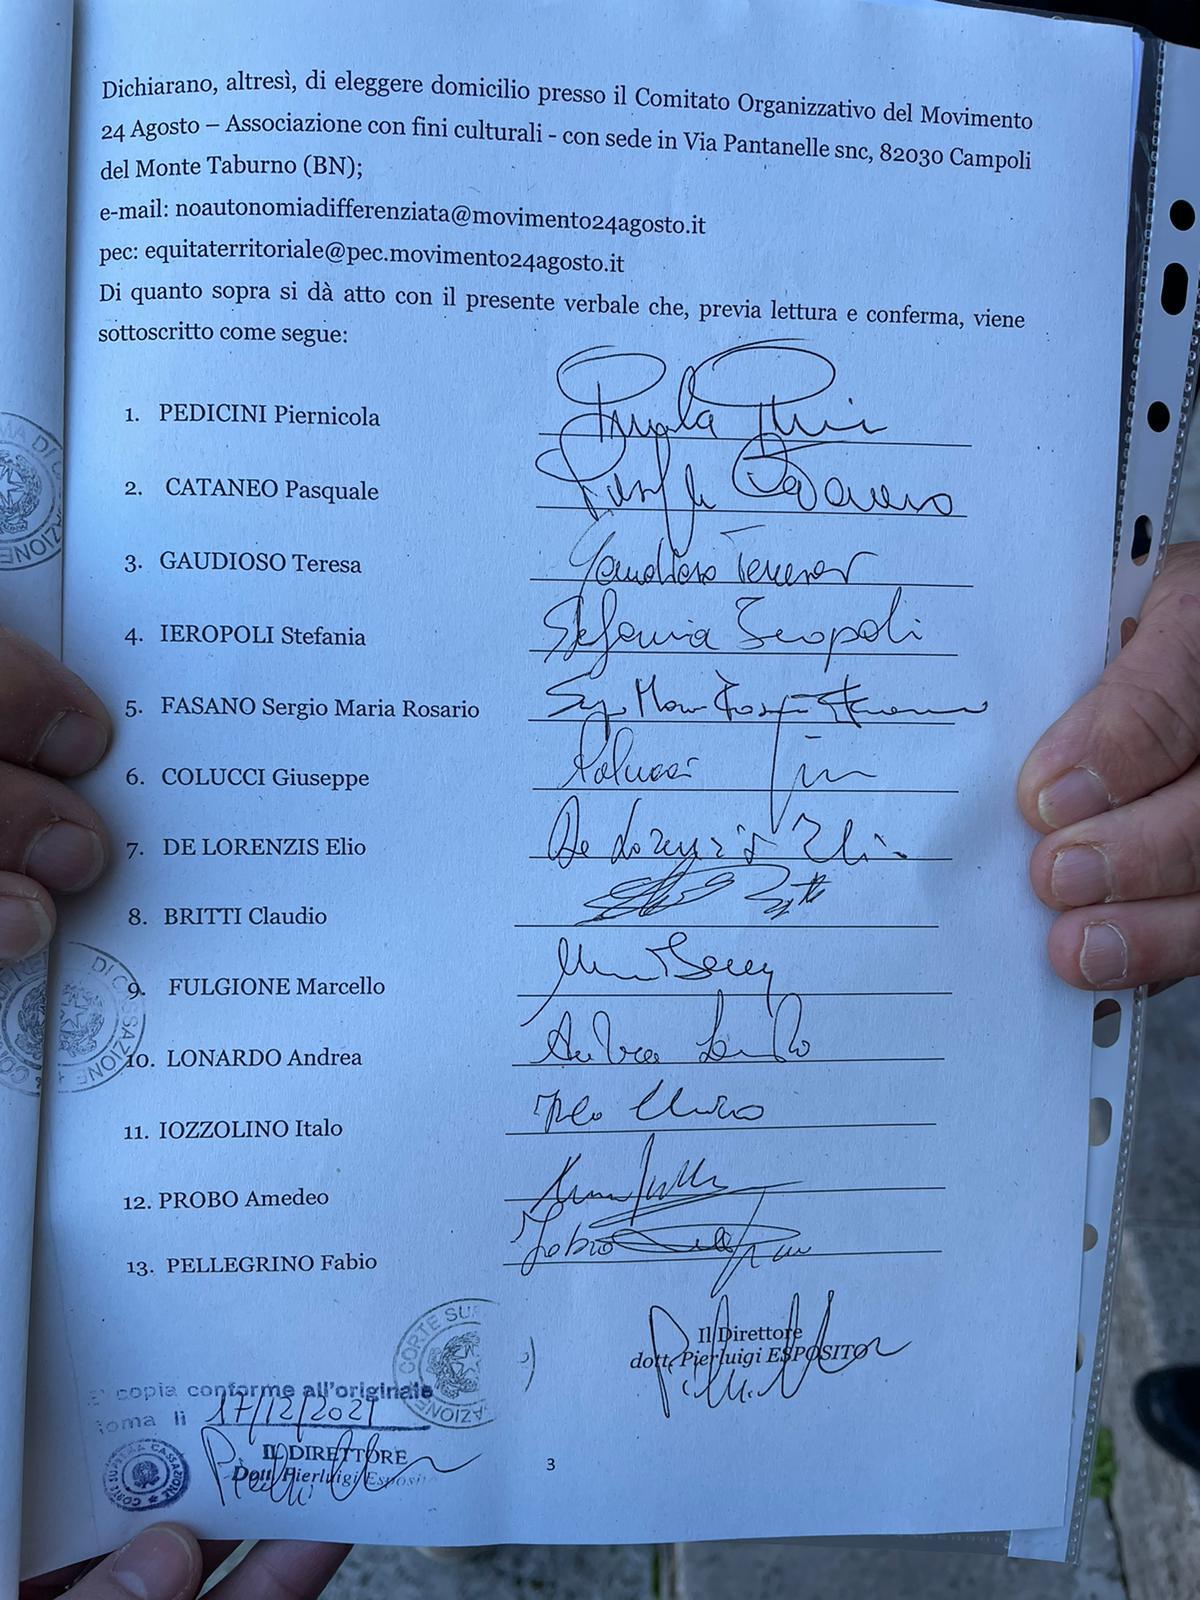 Dichiarano, altresì, di eleggere domicilio presso il Comitato Organizzativo del Movimento
24 Agosto – Associazione con fini culturali - con sede in Via Pantanelle snc, 82030 Campoli
del Monte Taburno (BN);
e-mail: noautonomiadifferenziata@movimento24agosto.it
pec: equitaterritoriale@pec.movimento24agosto.it
Di quanto sopra si dà atto con il presente verbale che, previa lettura e conferma, viene
sottoscritto come segue:
1. PEDICINI Piernicola
2. CATANEO Pasquale
3. GAUDIOSO Teresa Gaudioso Teresa
4. IEROPOLI Stefania Stefania Ieropoli
5. FASANO Sergio Maria Rosario
6. COLUCCI Giuseppe Colucci
7. DE LORENZIS Elio De Lorenzis Elio
8. BRITTI Claudio
9. FULGIONE Marcello
10. LONARDO Andrea Andrea
11. IOZZOLINO Italo
12. PROBO Amedeo
13. PELLEGRINO Fabio Fabio
Il Direttore
dott. Pierluigi ESPOSITO
CORTE SU
AZIONE
DI CASSAZIONE
copia conforme all'originale
oma lì 17/12/2021
IL DIRETTORE
Dott. Pierluigi Esposito
CORTE SUPREMA CASSAZIONE
3